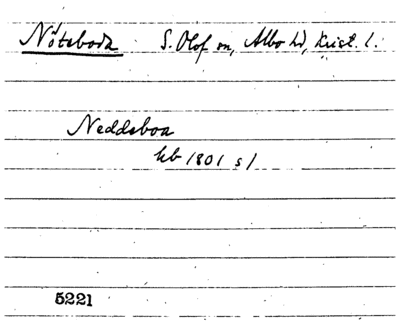 Nötaboda S. Olof sn, Albo hd, Krist. l.
Neddaboa
hb 1801 s 1
5221